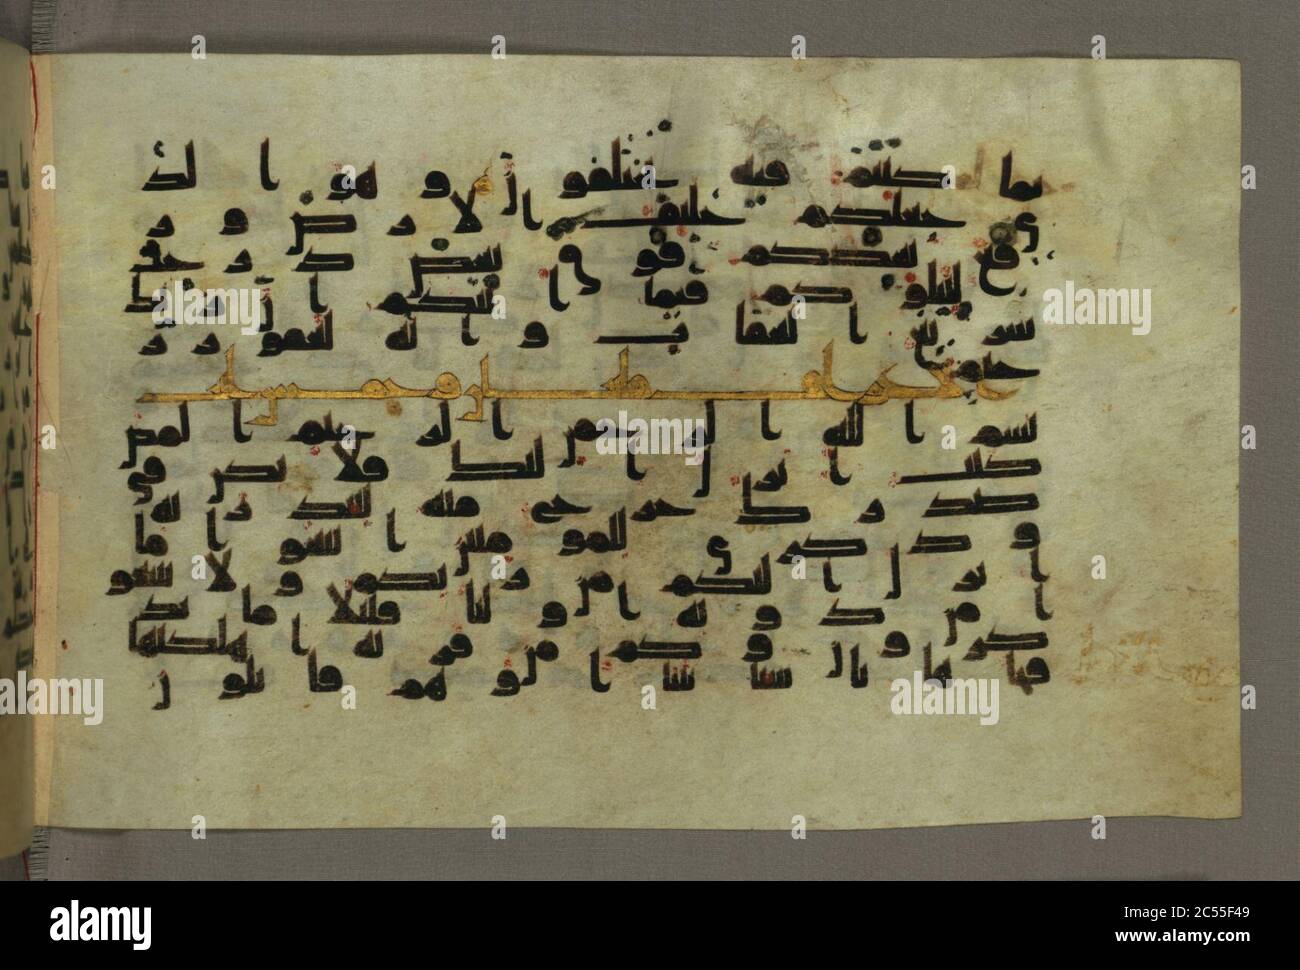 بما كنتم فيه تختلفون وهو الذ
ي جعلكم خلئف الارض ور
فع بعضكم فوق بعض درجت
ليبلوكم فيما اتيكم ان ربك
سريع العقاب وانه لغفور ر
حيم
بسم الله الرحمن الرحيم المص
كتب انزل اليك فلا يكن في
صدرك حرج منه لتنذر به
وذكرى للمومنين اتبعوا ما
انزل اليكم من ربكم ولا تتبعو
ا من دونه اوليا قليلا ما تذ
كرون وكم من قرية اهلكنها
فجاها باسنا بيتا او هم قايلون
alamy
Image ID: 2C55F49
www.alamy.com